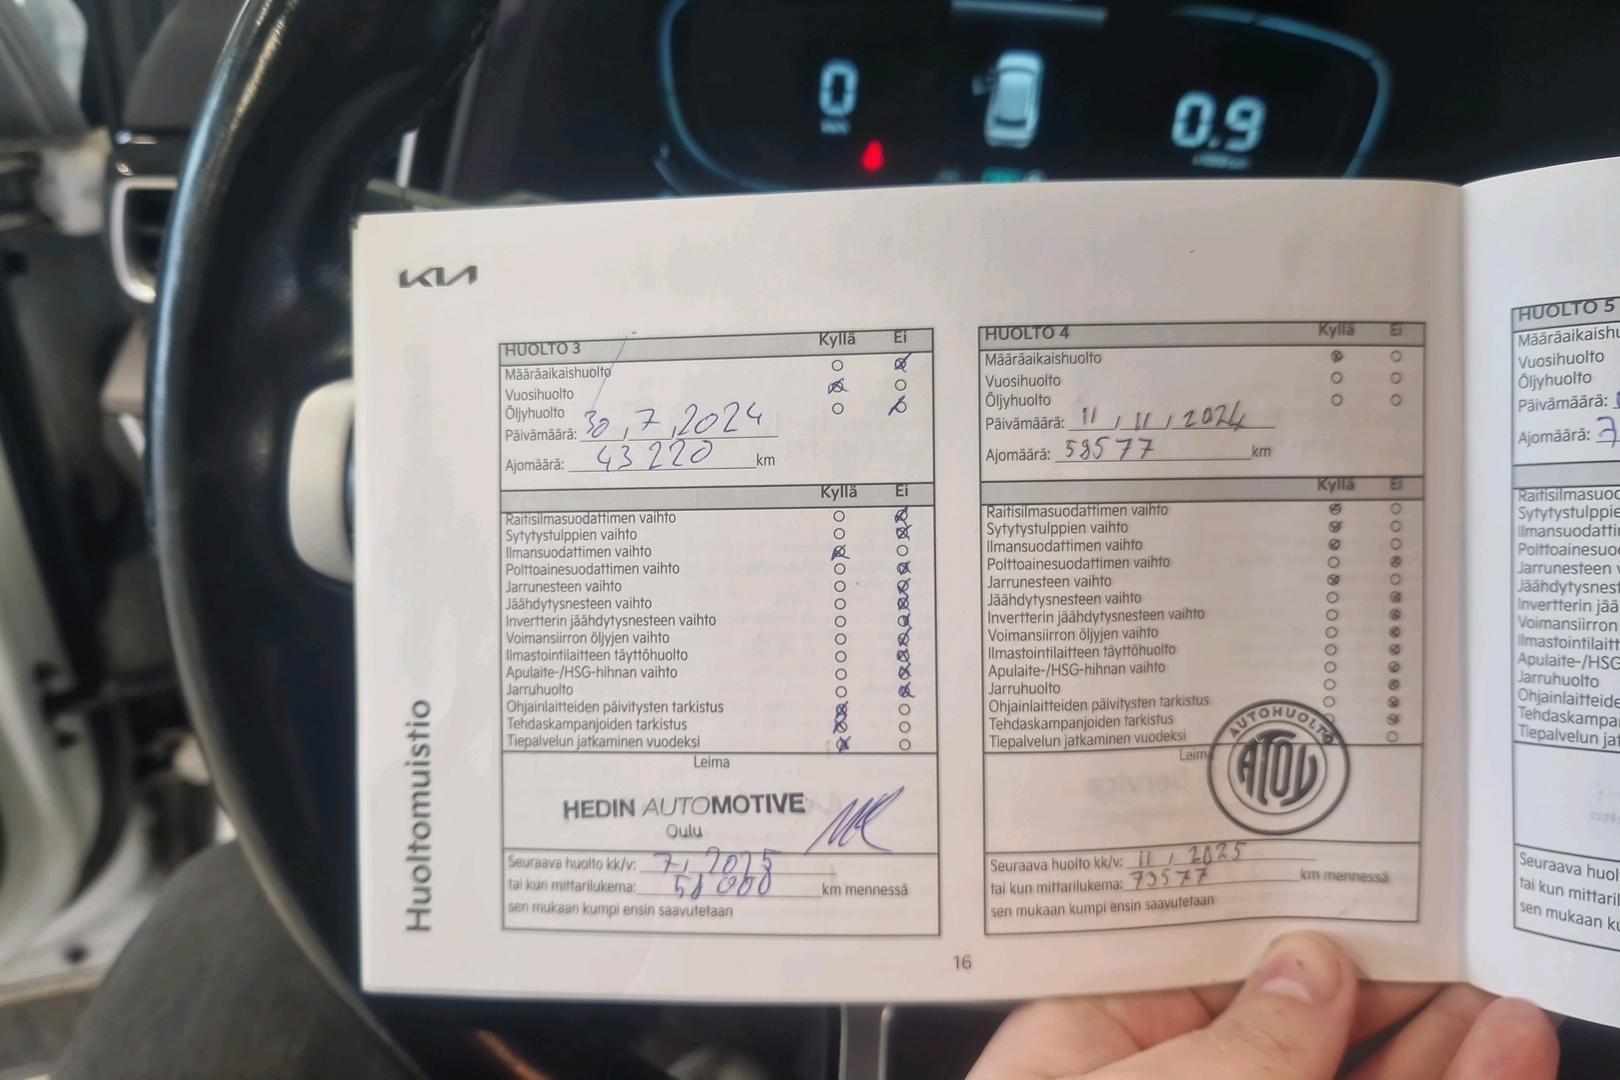 0
0.9
KIA
Huoltomuistio
HUOLTO 3 Kyllä Ei
Määräaikaishuolto
Vuosihuolto
Öljyhuolto
Päivämäärä: 30, 7, 2024
Ajomäärä: 43 220 km
Kyllä Ei
Raitisilmasuodattimen vaihto
Sytytystulppien vaihto
Ilmansuodattimen vaihto
Polttoainesuodattimen vaihto
Jarrunesteen vaihto
Jäähdytysnesteen vaihto
Invertterin jäähdytysnesteen vaihto
Voimansiirron öljyjen vaihto
Ilmastointilaitteen täyttöhuolto
Apulaite-/HSG-hihnan vaihto
Jarruhuolto
Ohjainlaitteiden päivitysten tarkistus
Tehdaskampanjoiden tarkistus
Tiepalvelun jatkaminen vuodeksi
Leima
HEDIN AUTOMOTIVE
Oulu
Seuraava huolto kk/v: 7, 2025
tai kun mittarilukema: 58 000 km mennessä
sen mukaan kumpi ensin saavutetaan
HUOLTO 4 Kyllä Ei
Määräaikaishuolto
Vuosihuolto
Öljyhuolto
Päivämäärä: 11 / 11 / 2024
Ajomäärä: 58577 km
Kyllä Ei
Raitisilmasuodattimen vaihto
Sytytystulppien vaihto
Ilmansuodattimen vaihto
Polttoainesuodattimen vaihto
Jarrunesteen vaihto
Jäähdytysnesteen vaihto
Invertterin jäähdytysnesteen vaihto
Voimansiirron öljyjen vaihto
Ilmastointilaitteen täyttöhuolto
Apulaite-/HSG-hihnan vaihto
Jarruhuolto
Ohjainlaitteiden päivitysten tarkistus
Tehdaskampanjoiden tarkistus
Tiepalvelun jatkaminen vuodeksi
Leim
AUTOHUOLTO
ATOY
Seuraava huolto kk/v: 11 / 2025
tai kun mittarilukema: 73577 km mennessä
sen mukaan kumpi ensin saavutetaan
16
HUOLTO 5
Määräaikaishu
Vuosihuolto
Öljyhuolto
Päivämäärä:
Ajomäärä: 7
Raitisilmasuod
Sytytystulppie
Ilmansuodatti
Polttoainesuo
Jarrunesteen v
Jäähdytysnest
Invertterin jää
Voimansiirron
Ilmastointilait
Apulaite-/HSG
Jarruhuolto
Ohjainlaitteide
Tehdaskampa
Tiepalvelun jat
Seuraava huol
tai kun mittaril
sen mukaan ku